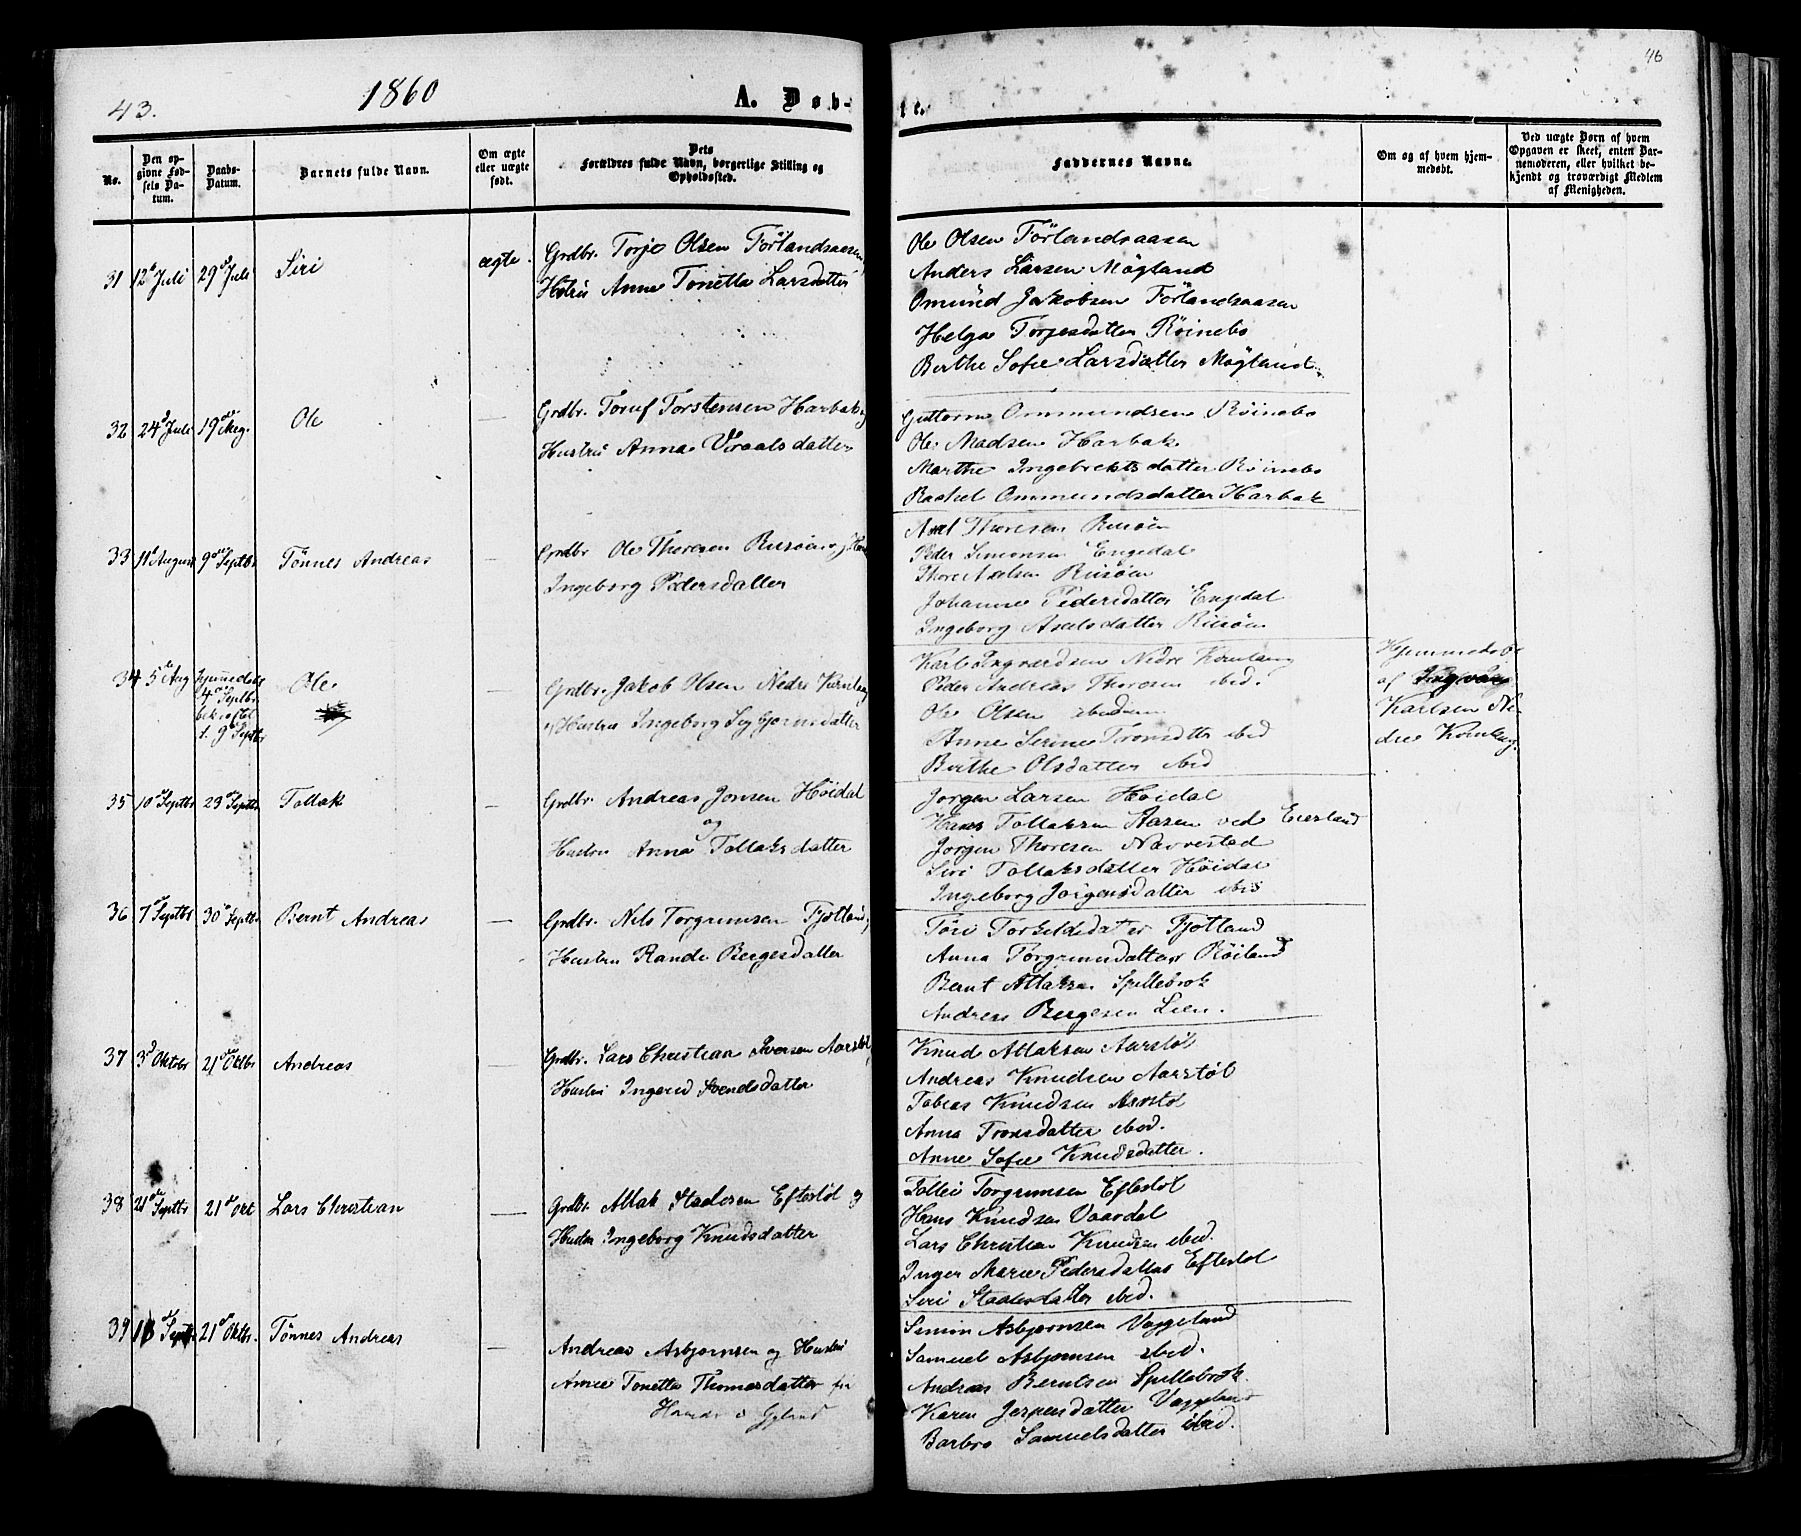 43.
1860
A. Døb-
te.
46
No.
Den opgivne Fødsels Datum.
Daabs-Datum.
Barnets fulde Navn.
Om ægte eller uægte født.
Dets Forældres fulde Navn, borgerlige Stilling og Opholdssted.
Faddernes Navne.
Om og af hvem hjemmedøbt.
Ved uægte Børn af hvem Opgaven er skeet, enten Barnemoderen, eller hvilket bekjendt og troværdigt Medlem af Menigheden.
31 12te Juli 29de Juli Siri ægte. Grdbr. Torje Olsen Förlandsaasen
Hstru Anne Tonette Larsdatter
Ole Olsen Förlandsaasen
Anders Larsen Mögland
Omünd Jakobsen Förlandsaasen
Helga Torjesdatter Röinebo
Berthe Sofie Larsdatter Mögland
32 24de Juli 19de Aug. Ole — Grdbr. Toruf Torstensen Harbak og
Hustru Anna Vraalsdatter
Guttorm Ommundsen Röinebo
Ole Madsen Harbak
Marthe Ingebrektsdatter Röinebo
Rachel Ommundsdatter Harbak
33 11te August 9de Septbr Tönnes Andreas — Grdbr Ole Thoresen Risöen og
Ingeborg Pedersdatter
Axel Thoresen Risöen
Peder Simonsen Engedal
Thore Axelsen Risöen
Johanne Pedersdatter Engedal
Ingeborg Axelsdatter Risöen
34 5te Aug hjemmedöbt
4de Septbr
bekræftet
d. 9de Septbr
Ole — Grdbr. Jakob Olsen Nedre Kvinlaug
og Hustru Ingeborg Segbjornsdatter
Karl Ingvardsen Nedre Kvinlaug
Peder Andreas Thoresen ibid.
Ole Olsen ibidem
Anne Serine Tronsdatter ibid
Berthe Olsdatter ibid
Hjemmedöbt
af Ingvard
Karlsen Ne-
dre Kvinlaug.
35 10de Septbr 23de Septbr. Tollak — Grdbr. Andreas Jonsen Höidal
og
Hustru Anna Tollaksdatter
Jorgen Larsen Höidal
Hans Tollaksen Aasen ved Eiesland
Jorgen Thoresen Navrestad
Siri Tollaksdatter Höidal
Ingeborg Jörgensdatter ibid
36 7de Septbr 30de Septbr Bernt Andreas — Grdbr. Nils Torgrimsen Fjotland,
Hustru Randi Bergesdatter
Töri Torkeldsdatter Fjotland
Anna Torgrimsdatter Röiland
Bernt Atlaksen Spillebrok
Andreas Bergesen Lien.
37 3de Oktobr 21de Oktbr Andreas — Grdbr. Lars Christian Iversen Aarstöl,
Hustru Ingerid Svendsdatter
Knud Atlaksen Aarstöl
Andreas Knudsen Aarstöl
Tobias Knudsen Aarstöl
Anna Tronsdatter ibid.
Anne Sofie Knudsdatter.
38 21de Septbr 21de Okt Lars Christian — Grdbr. Atlak Staalesen Eftestöl og
Hustru Ingeborg Knudsdatter
Tollei Torgrimsen Eftestöl
Hans Knudsen Vaardal
Lars Christian Knudsen ibid.
Inger Marie Pedersdatter Eftestöl
Siri Staalesdatter ibid.
39 18de Septbr 21de Oktbr. Tönnes Andreas — Andreas Asbjornsen og Hustru
Anne Tonette Thomasdatter fra
i Gyland
Simon Asbjornsen Vaggeland
Samuel Asbjornsen ibid.
Andreas Berntsen Spillebrok
Karen Jespersdatter Vaggeland
Barbro Samuelsdatter ibid.